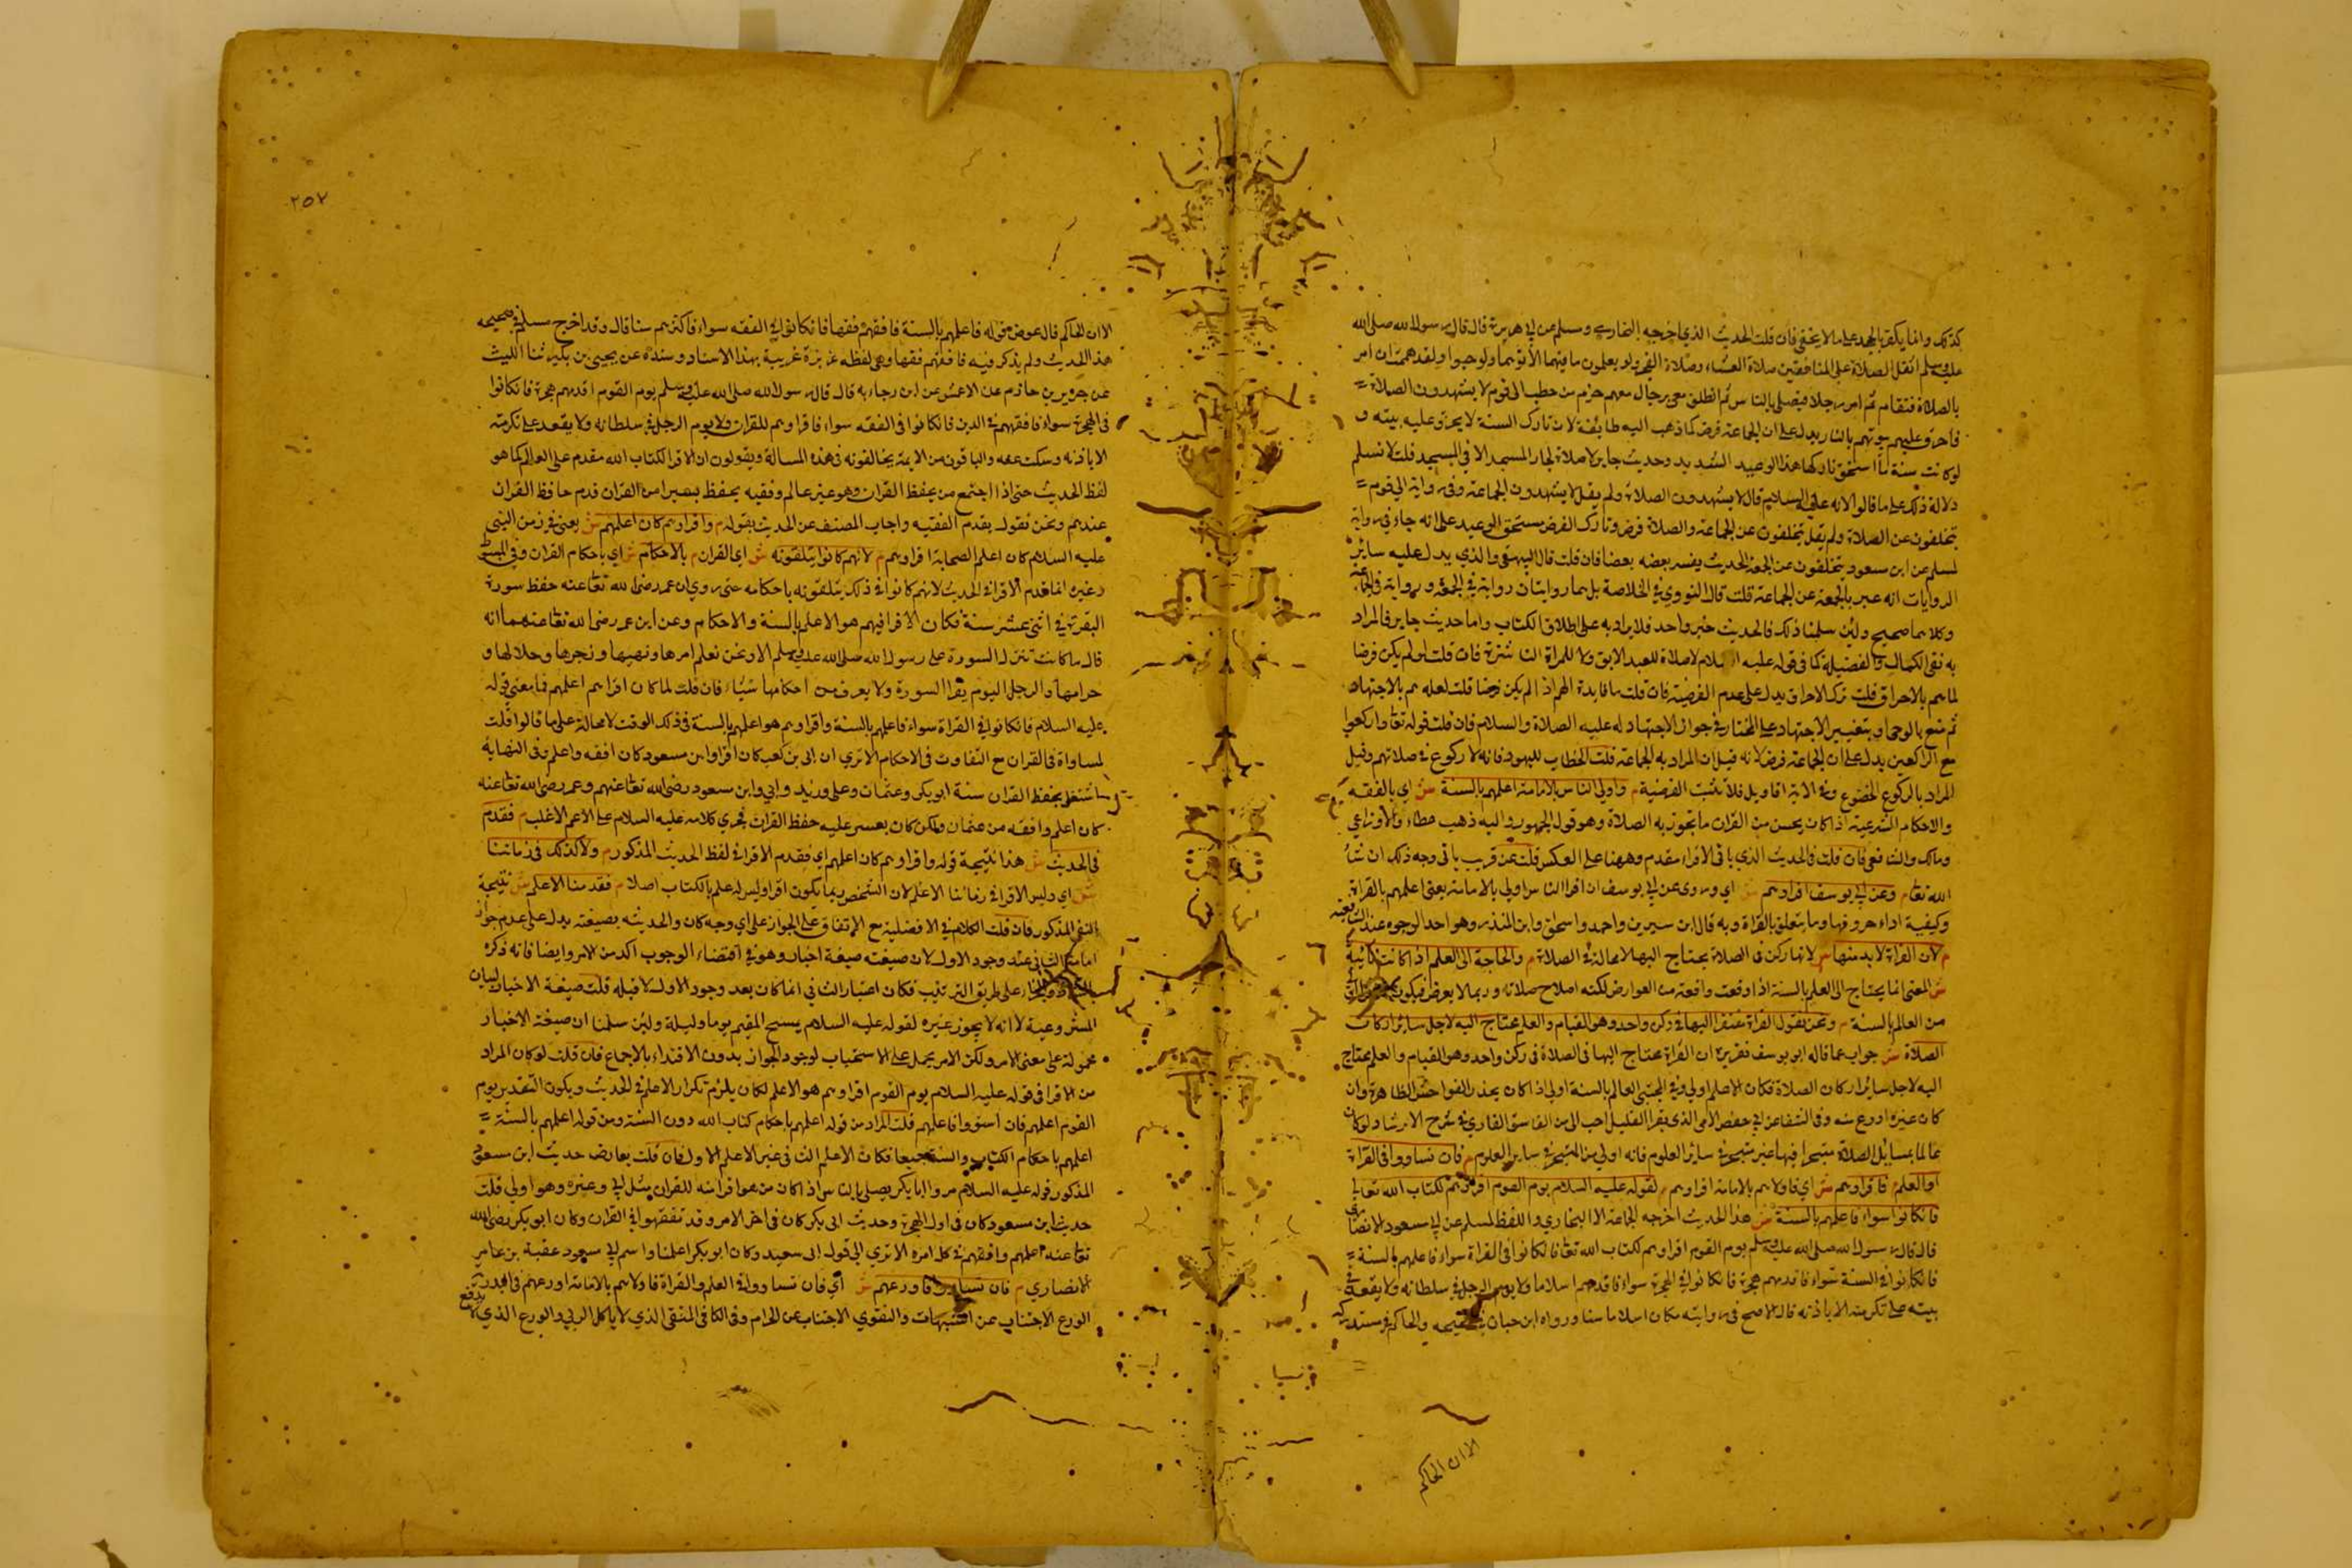 كذلك وانما يكفر بالجحد على مالا يخفى فان قلت الحديث الذي اخرجه البخاري ومسلم عن ابي هريرة قال قال رسول الله صلى الله
عليه وسلم اثقل الصلاة على المنافقين صلاة العشاء وصلاة الفجر ولو يعلمون ما فيهما لاتوهما ولو حبوا ولقد هممت ان امر
بالصلاة فتقام ثم امر رجلا فيصلي بالناس ثم انطلق معي برجال معهم حزم من حطب الى قوم لا يشهدون الصلاة
فاحرق عليهم بيوتهم بالنار يدل على ان الجماعة فرض كما ذهب اليه طائفة لان تارك السنة لا يحرق عليه بيته و
لو كانت سنة لما استحق تاركها هذا الوعيد الشديد وحديث جابر لا صلاة لجار المسجد الا في المسجد قلت لا نسلم
دلالة ذلك على ما قالوا لانه عليه السلام قال لا يشهدون الصلاة ولم يقل لا يشهدون الجماعة وفي رواية الى قوم
يتخلفون عن الصلاة ولم يقل يتخلفون عن الجماعة والصلاة فرض وتارك الفرض يستحق الوعيد على انه جاء في رواية
لمسلم عن ابن مسعود يتخلفون عن الجمعة الحديث يفسر بعضه بعضا فان قلت قال البيهقي والذي يدل عليه سائر
الروايات انه عبر بالجمعة عن الجماعة قلت قال النووي في الخلاصة بل هما روايتان رواية في الجمعة ورواية في الجماعة
وكلاهما صحيح ولئن سلمنا ذلك فالحديث خبر واحد فلا يزاد به على اطلاق الكتاب واما حديث جابر فالمراد
به نفي الكمال والفضيلة كما في قوله عليه السلام لا صلاة للعبد الابق ولا للمراة الناشزة فان قلت لو لم يكن فرضا
لما هم بالاحراق قلت ترك الاحراق يدل على عدم الفرضية فان قلت ما فايدة الهم اذا لم يكن فرضا قلت لعله هم بالاجتهاد
ثم منع بالوحي او بتغيير الاجتهاد على المختار في جواز الاجتهاد له عليه الصلاة والسلام فان قلت قوله تعالى واركعوا
مع الراكعين يدل على ان الجماعة فرض لانه قيل ان المراد به الجماعة قلت الخطاب لليهود فانه لا ركوع في صلاتهم وقيل
المراد بالركوع الخضوع وفي الاية اقاويل فلا تثبت الفرضية م واولى الناس بالامامة اعلمهم بالسنة ش اي بالفقه
والاحكام الشرعية اذا كان يحسن من القران ما تجوز به الصلاة وهو قول الجمهور واليه ذهب عطاء والاوزاعي
ومالك والشافعي فان قلت في الحديث الذي ياتي الاقراء مقدم وههنا على العكس قلت عن قريب ياتي وجه ذلك ان شاء
الله تعالى م وعن ابي يوسف اقراوهم ش اي وروى عن ابي يوسف ان اقرا الناس اولى بالامامة يعني اعلمهم بالقراة
وكيفية اداء حروفها وما يتعلق بالقراة وبه قال ابن سيرين واحمد واسحق وابن المنذر وهو احد الوجوه عند الشافعية
م لان القراة لا بد منها ش لانها ركن في الصلاة يحتاج اليها لا محالة في الصلاة م والحاجة الى العلم اذا كانت نائبة
ش المعنى انما يحتاج الى العلم بالسنة اذا وقعت واقعة من العوارض لكنه اصلاح صلاته وربما لا يعرض فيكون
من العالم بالسنة م ونحن نقول القراة مفتقر اليها في ركن واحد وهو القيام والعلم يحتاج اليه لاجل سائر اركان
الصلاة ش جواب عما قاله ابو يوسف تقريره ان القراة محتاج اليها في الصلاة في ركن واحد وهو القيام والعلم محتاج
اليه لاجل سائر اركان الصلاة فكان الاعلم اولى وفي المجتبى العالم بالسنة اولى اذا كان يحذر الفواحش الظاهرة وان
كان غيره اورع منه وفي الشفا عن ابي حفص الامي الذي يقرا القليل احب الي من الفاسق القاري في شرح الارشاد ولو كان
عالما بمسائل الصلاة متبحرا فيها غير متبحر في سائر العلوم فانه اولى من المتبحر في سائر العلوم م فان تساووا في القراة
او العلم م فاقراوهم ش اي فاولاهم بالامامة اقراوهم م لقوله عليه السلام يوم القوم اقراوهم لكتاب الله تعالى
فان كانوا سواء فاعلمهم بالسنة ش هذا الحديث اخرجه الجماعة الا البخاري واللفظ لمسلم عن ابي مسعود الانصاري
قال قال رسول الله صلى الله عليه وسلم يوم القوم اقراوهم لكتاب الله تعالى فان كانوا في القراة سواء فاعلمهم بالسنة
فان كانوا في السنة سواء فاقدمهم هجرة فان كانوا في الهجرة سواء فاقدمهم اسلاما ولا يومن الرجل في سلطانه ولا يقعد في
بيته على تكرمته الا باذنه قال الاصح في روايته مكان اسلاما سنا ورواه ابن حبان في صحيحه والحاكم في مستدركه
الا ان الحاكم
٢٥٧
الا ان الحاكم قال عوض قوله فاعلمهم بالسنة فافقههم فقها فان كانوا في الفقه سواء فاكثرهم سنا قال وقد اخرج مسلم في صحيحه
هذا الحديث ولم يذكر فيه فافقههم فقها وهي لفظة عزيزة غريبة بهذا الاسناد وسنده عن يحيى بن بكير ثنا الليث
عن جرير بن حازم عن الاعمش عن ابن رجاء به قال قال رسول الله صلى الله عليه وسلم يوم القوم اقدمهم هجرة فان كانوا
في الهجرة سواء فافقههم في الدين فان كانوا في الفقه سواء فاقراوهم للقران ولا يوم الرجل في سلطانه ولا يقعد على تكرمته
الا باذنه وسكت عنه والباقون من الايمة يخالفونه في هذه المسالة ويقولون ان الاقرا لكتاب الله مقدم على العالم كما هو
لفظ الحديث حتى اذا اجتمع من يحفظ القران وهو غير عالم وفقيه يحفظ يسيرا من القران قدم حافظ القران
عندهم ونحن نقول يقدم الفقيه واجاب المصنف عن الحديث بقوله م واقراوهم كان اعلمهم ش يعني في زمن النبي
عليه السلام كان اعلم الصحابة اقراوهم م لانهم كانوا يتلقونه ش اي القران م بالاحكام ش اي باحكام القران وفي المبسوط
وغيره انما قدم الاقرا في الحديث لانهم كانوا في ذلك يتلقونه باحكامه حتى روي ان عمر رضي الله تعالى عنه حفظ سورة
البقرة في اثنتي عشر سنة فكان الاقرا فيهم هو الاعلم بالسنة والاحكام وعن ابن عمر رضي الله تعالى عنهما انه
قال ما كانت تنزل السورة على رسول الله صلى الله عليه وسلم الا ونحن نعلم امرها ونهيها وزجرها وحلالها و
حرامها والرجل اليوم يقرا السورة ولا يعرف من احكامها شيئا، فان قلت لما كان اقراهم اعلمهم فما معنى قوله
عليه السلام فان كانوا في القراة سواء فاعلمهم بالسنة واقراوهم هو اعلمهم بالسنة في ذلك الوقت لا محالة على ما قالوا قلت
لمساواة في القران مع التفاوت في الاحكام الا ترى ان ابي بن كعب كان اقرا وابن مسعود كان افقه واعلم وفي النهاية
اشتغل بحفظ القران ستة ابو بكر وعثمان وعلي وزيد وابي وابن مسعود رضي الله تعالى عنهم وعمر رضي الله تعالى عنه
كان اعلم وافقه من عثمان ولكن كان يعسر عليه حفظ القران فجرى كلامه عليه السلام على الاعم الاغلب م فقدم
في الحديث ش هذا نتيجة قوله واقراوهم كان اعلمهم اي فقدم الاقرا في لفظ الحديث المذكور م ولا كذلك في زماننا
ش اي وليس الاقرا في زماننا الاعلم لان الشخص ربما يكون اقرا وليس له علم بالكتاب اصلا م فقدمنا الاعلم ش نتيجة
النفي المذكور فان قلت الكلام في الافضلية مع الاتفاق على الجواز على اي وجه كان والحديث بصيغته يدل على عدم جواز
امامة الثاني عند وجود الاول لان صيغته صيغة اخبار وهو في اقتضاء الوجوب اكد من الامر وايضا فانه ذكره
على طريق الترتيب فكان اعتبار الثاني انما كان بعد وجود الاول لا قبله قلت صيغة الاخبار لبيان
المشروعية لا انه لا يجوز غيره لقوله عليه السلام يمسح المقيم يوما وليلة ولئن سلمنا ان صيغة الاخبار
محمولة على معنى الامر ولكن الامر يحمل على الاستحباب لوجود الجواز بدون الاقتداء بالاجماع فان قلت لو كان المراد
من الاقرا في قوله عليه السلام يوم القوم اقراوهم هو الاعلم لكان يلزم تكرار الاعلم في الحديث ويكون التقدير يوم
القوم اعلمهم فان استووا فاعلمهم قلت المراد من قوله اعلمهم باحكام كتاب الله دون السنة ومن قوله اعلمهم بالسنة
اعلمهم باحكام الكتاب والسنة جميعا فكان الاعلم الثاني غير الاعلم الاول فان قلت يعارض حديث ابن مسعود
المذكور قوله عليه السلام مروا ابا بكر يصلي بالناس اذ كان من هو اقرا منه للقران مثل ابي وغيره وهو اولى قلت
حديث ابن مسعود كان في اول الهجرة وحديث ابي بكر كان في اخر الامر وقد تفقهوا في القران وكان ابو بكر رضي الله
تعالى عنه اعلمهم وافقههم في كل امره الا ترى الى قول ابي سعيد وكان ابو بكر اعلمنا واسم ابي مسعود عقبة بن عامر
الانصاري م فان تساووا فاورعهم ش اي فان تساووا في العلم والقراة فاولاهم بالامامة اورعهم
الورع الاجتناب عن الشبهات والتقوى الاجتناب عن الحرام وفي الكافي المتقي الذي لا ياكل الربى والورع الذي لا